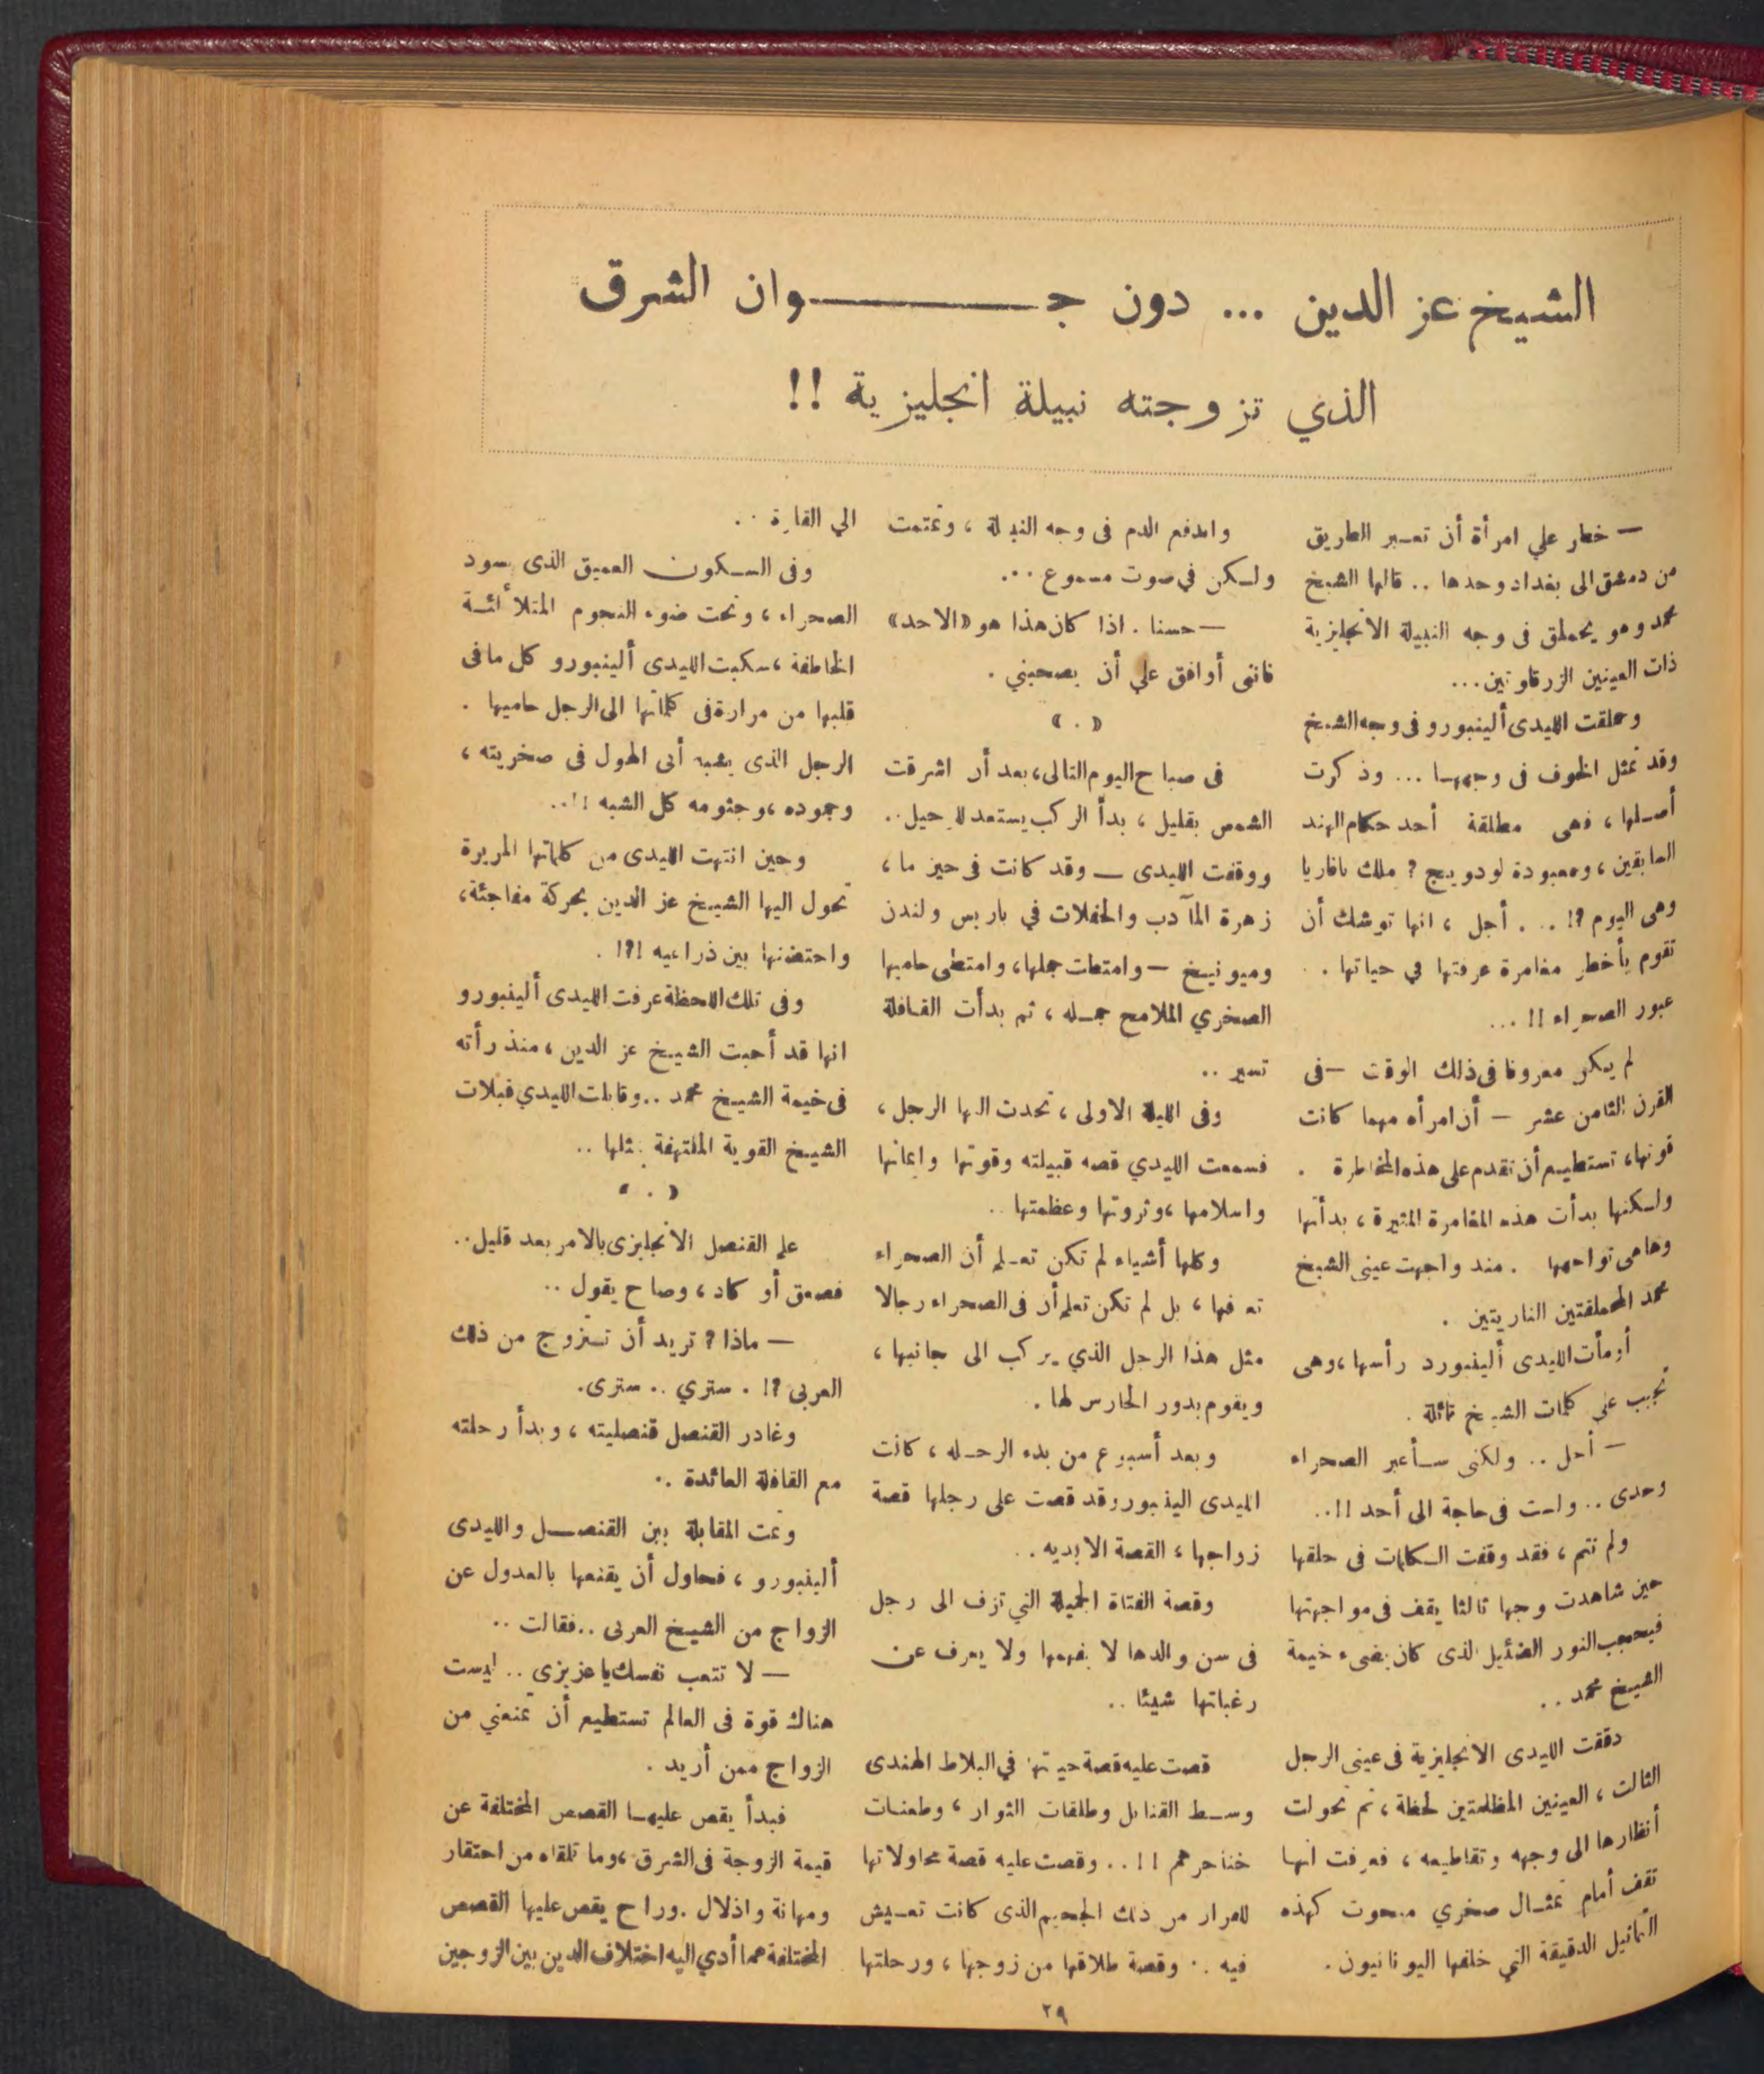 الشيخ عز الدين ... دون جـــوان الشرق
الذي تزوجته نبيلة انجليزية !!
— خطر علي امرأة أن تعبر الطريق
من دمشق الى بغداد وحدها .. قالها الشيخ
محمد وهو يحملق فى وجه النبيلة الانجليزية
ذات العينين الزرقاوتين...
وحملقت الليدى ألينبورو فى وجه الشيخ
وقد تمثل الخوف فى وجهها ... وذكرت
أصلها ، فهى مطلقة أحد حكام الهند
السابقين ، ومعبودة لودويج ? ملك بافاريا
وهى اليوم ?! .. . أجل ، انها توشك أن
تقوم بأخطر مغامرة عرفتها في حياتها . .
عبور الصحراء !! ...
لم يكن معروفا فى ذلك الوقت — فى
القرن الثامن عشر — أن امرأه مهما كانت
قوتها، تستطيع أن تقدم على هذه المخاطرة .
ولكنها بدأت هذه المغامرة المثيرة ، بدأتها
وهاهى تواجهها . منذ واجهت عينى الشيخ
محمد المحملقتين الناريتين .
أومأت الليدى ألينبورد رأسها ، وهى
تجيب علي كلمات الشيخ قائلة .
— أجل .. ولكنى سأعبر الصحراء
وحدى .. ولست فى حاجة الى أحد !! ..
ولم تتم ، فقد وقفت الكلمات فى حلقها
حين شاهدت وجها ثالثا يقف فى مواجهتها
فيحجب النور الضئيل الذى كان يضىء خيمة
الشيخ محمد ..
دققت الليدى الانجليزية فى عينى الرجل
الثالث ، العينين المظلمتين لحظة ، ثم تحولت
أنظارها الى وجهه وتقاطيعه ، فعرفت انها
تقف أمام تمثال صخري منحوت كهذه
التماثيل الدقيقة التي خلفها اليونانيون .
واندفع الدم فى وجه النبيلة ، وتمتمت
ولكن في صوت مسموع ...
— حسنا . اذا كان هذا هو «الاحد»
فاننى أوافق علي أن يصحبني .
« . »
فى صباح اليوم التالى، بعد أن اشرقت
الشمس بقليل ، بدأ الركب يستعد للرحيل ..
ووقفت الليدى — وقد كانت فى حيز ما ،
زهرة المآدب والحفلات في باريس ولندن
وميونيخ — وامتطت جملها، وامتطى حاميها
الصخري الملامح جمله ، ثم بدأت القافلة
تسير ..
وفى الليلة الاولى ، تحدث اليها الرجل ،
فسمعت الليدي قصه قبيلته وقوتها وايمانها
واسلامها ، وثروتها وعظمتها ..
وكلها أشياء لم تكن تعلم أن الصحراء
تعرفها ، بل لم تكن تعلم أن فى الصحراء رجالا
مثل هذا الرجل الذي يركب الى جانبها ،
ويقوم بدور الحارس لها .
وبعد أسبوع من بدء الرحله ، كانت
الليدى الينبورو قد قصت على رجلها قصة
زواجها ، القصة الابديه ..
وقصة الفتاة الجميلة التي تزف الى رجل
فى سن والدها لا يفهمها ولا يعرف عن
رغباتها شيئا ..
قصت عليه قصة حيتها في البلاط الهندى
وسط القنابل وطلقات الثوار ، وطعنات
خناجرهم !! .. وقصت عليه قصة محاولاتها
للفرار من ذلك الجحيم الذى كانت تعيش
فيه .. وقصة طلاقها من زوجها ، ورحلتها
الي القارة ..
وفى السكون العميق الذى يسود
الصحراء ، وتحت ضوء النجوم المتلألئة
الخاطفة ، سكبت الليدى ألينبورو كل ما فى
قلبها من مرارة فى كلماتها الى الرجل حاميها .
الرجل الذى يشبه أبى الهول فى صخريته ،
وجموده ، وجثومه كل الشبه !! ..
وحين انتهت الليدى من كلماتها المريرة
تحول اليها الشيخ عز الدين بحركة مفاجئة ،
واحتضنها بين ذراعيه !?! .
وفى تلك اللحظة عرفت الليدى ألينبورو
انها قد أحبت الشيخ عز الدين ، منذ رأته
فى خيمة الشيخ محمد .. وقابلت الليدي قبلات
الشيخ القوية الملتهفة بمثلها ..
« . »
علم القنصل الانجليزى بالامر بعد قليل ..
فصعق أو كاد ، وصاح يقول ..
— ماذا ? تريد أن تتزوج من ذلك
العربى ?! . سترى .. سترى.
وغادر القنصل قنصليته ، وبدأ رحلته
مع القافلة العائدة ..
وتمت المقابلة بين القنصل والليدى
ألينبورو ، فحاول أن يقنعها بالعدول عن
الزواج من الشيخ العربى .. فقالت ..
— لا تتعب نفسك يا عزيزى .. ليست
هناك قوة فى العالم تستطيع أن تمنعني من
الزواج ممن أريد .
فبدأ يقص عليها القصص المختلفة عن
قيمة الزوجة فى الشرق ، وما تلقاه من احتقار
ومهانة واذلال . وراح يقص عليها القصص
المختلفة عما أدي اليه اختلاف الدين بين الزوجين
٢٩